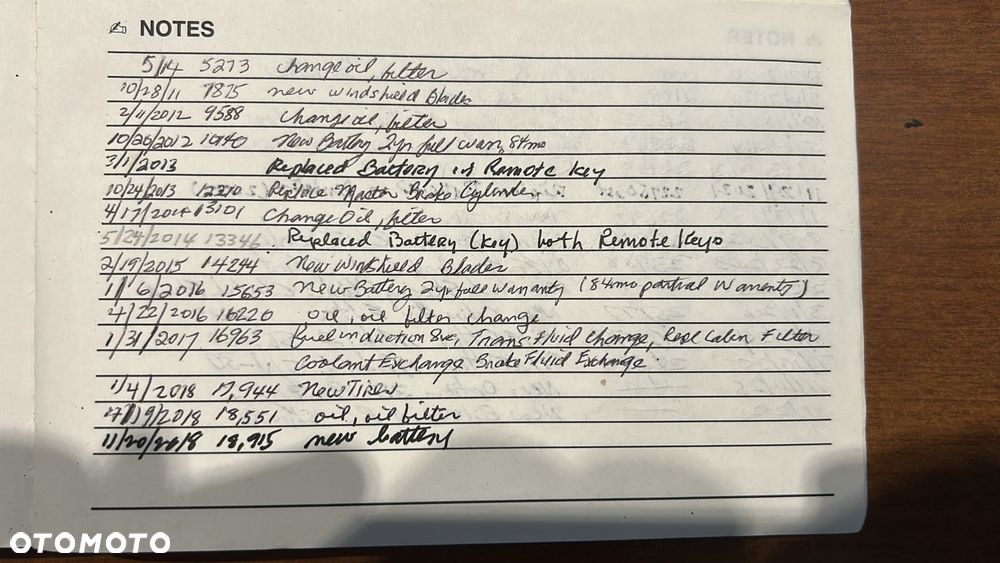 NOTES
5/14 5273 change oil, filter
10/28/11 7875 new windshield Blades
2/11/2012 9588 change oil, filter
10/26/2012 10140 New Battery 2yr full warr, 84mo
3/1/2013 Replaced Battery in Remote key
10/24/2013 Replace Master Brake Cylinder
4/17/2014 13101 Change Oil, filter
5/24/2014 13346 Replaced Battery (key) both Remote Keys
2/19/2015 14244 New windshield Blades
1/6/2016 15653 New Battery 2yr full warranty (84mo partial Warranty)
4/22/2016 16220 oil, oil filter change
1/31/2017 16963 fuel induction Svc, Trans Fluid Change, Repl Cabin Filter
Coolant Exchange Brake Fluid Exchange
1/4/2018 17,944 New Tires
/19/2018 18,551 oil, oil filter
11/20/2018 18,915 new battery
OTOMOTO